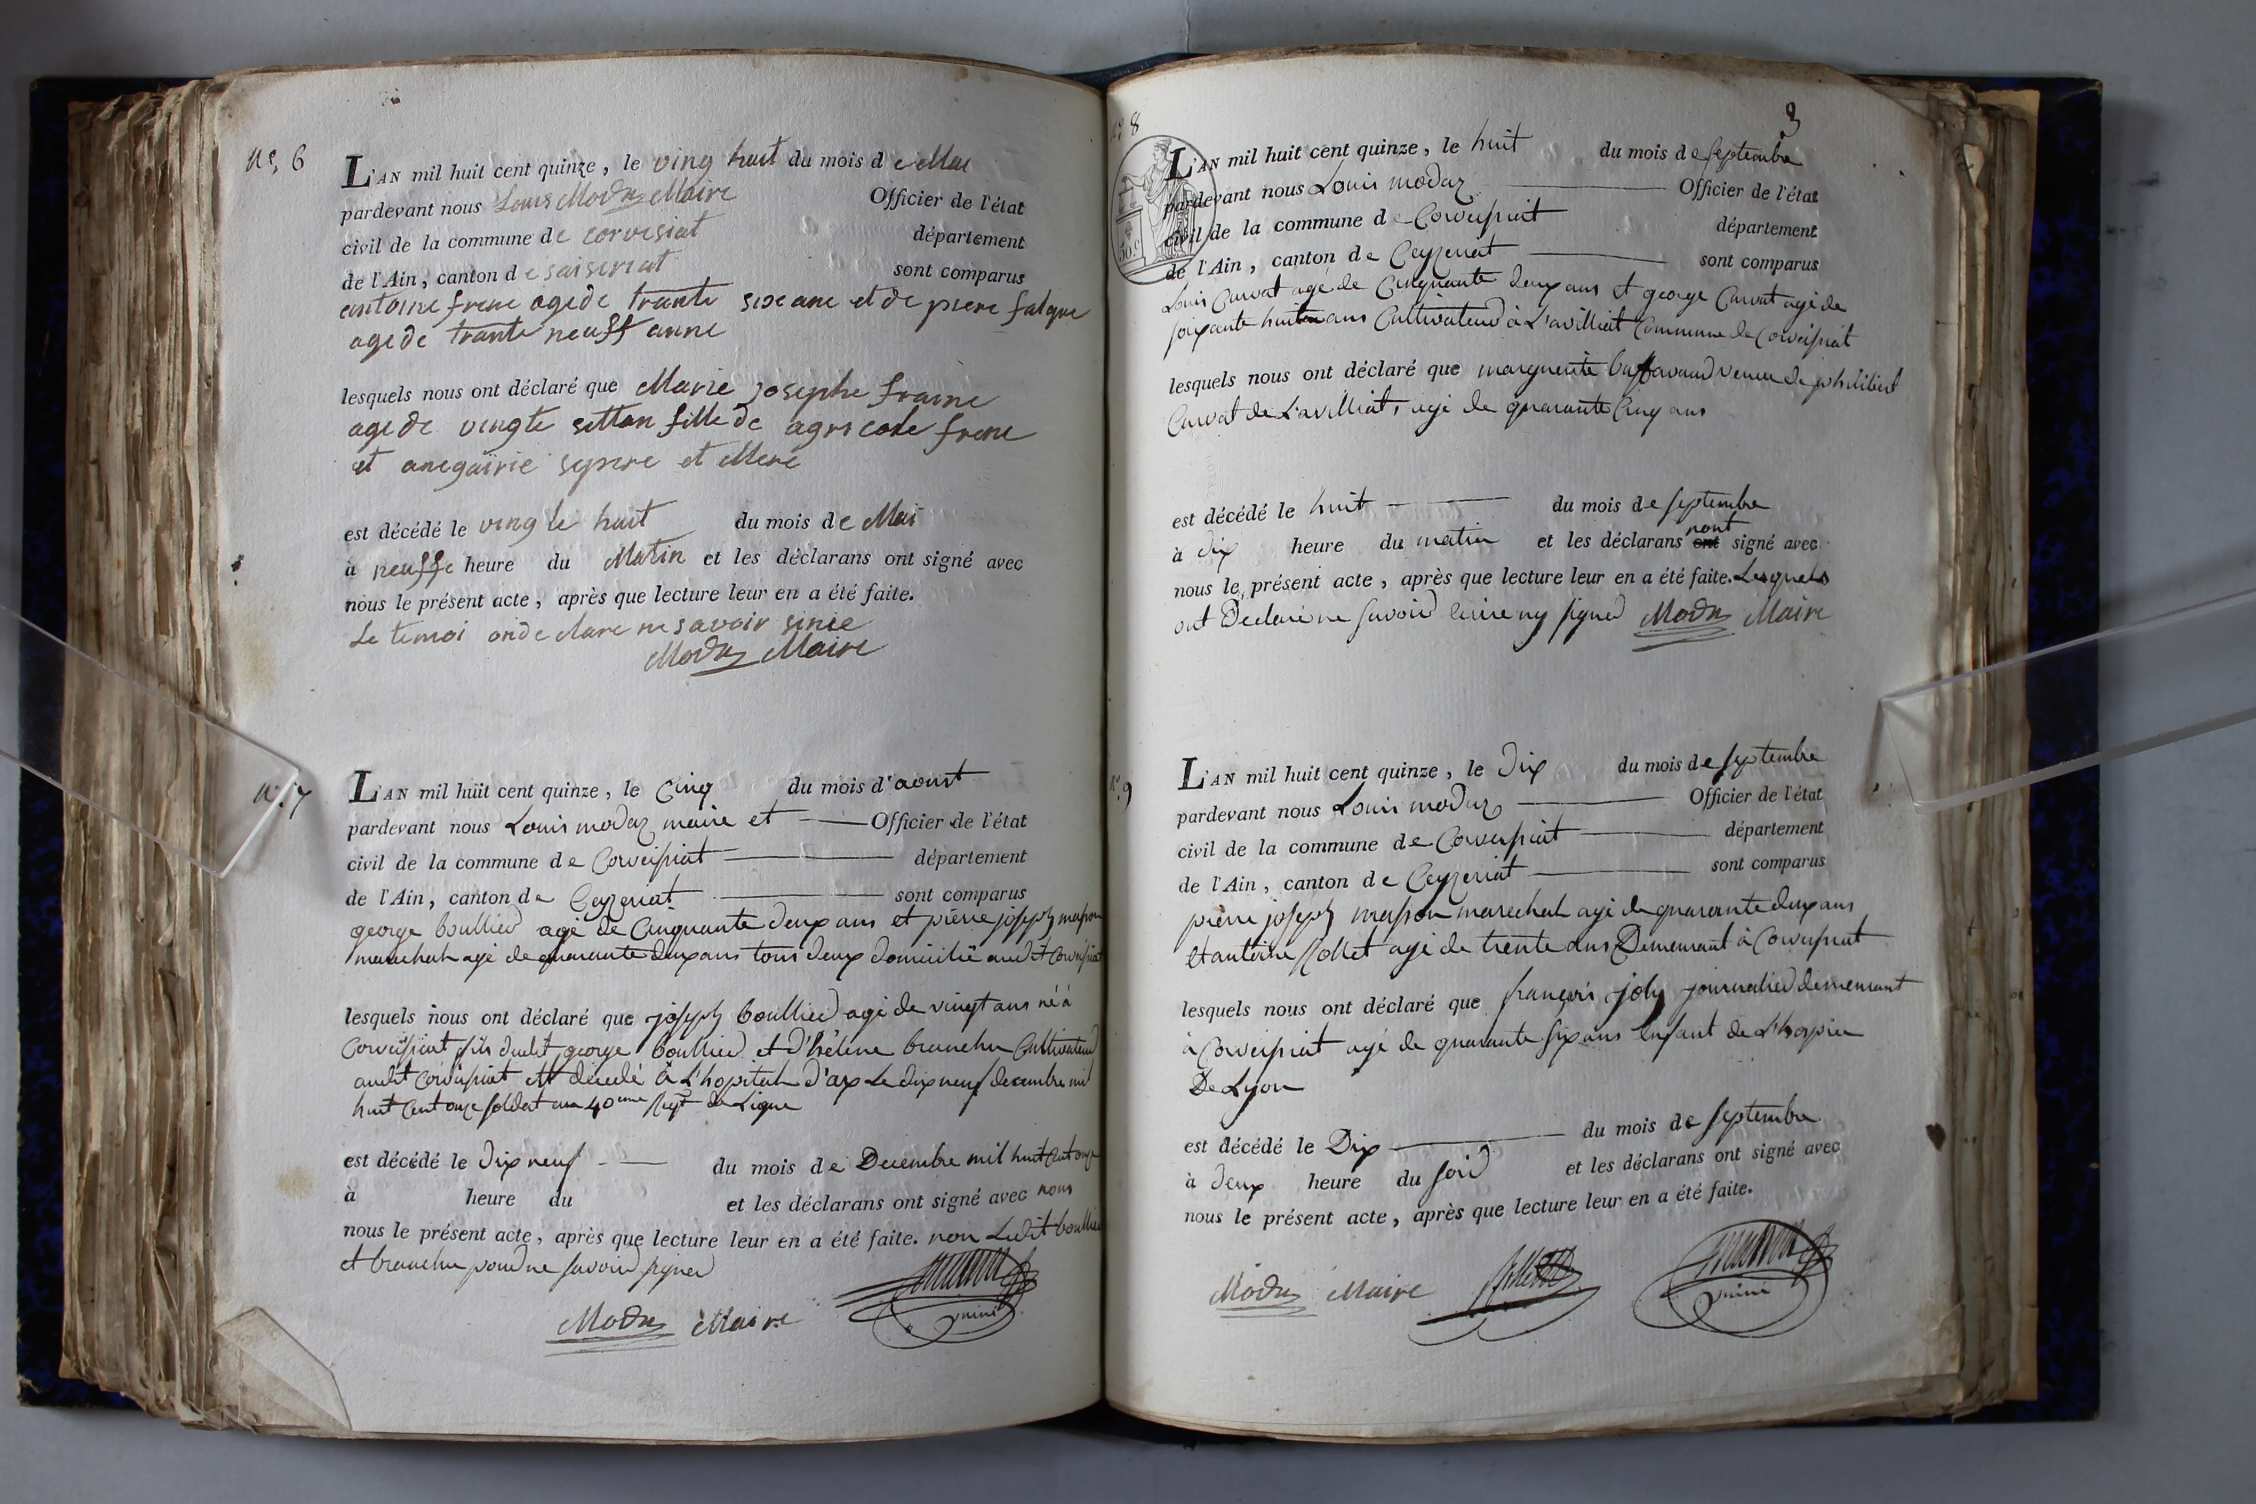 N.º 6
L'AN mil huit cent quinze, le ving huit du mois de Mai
pardevant nous Louis Modaz Maire Officier de l'état
civil de la commune de corvesiat département
de l'Ain, canton de saiseriat sont comparus
antoine frene age de trante sixe ane et de piere falque
age de trante neuff anne
lesquels nous ont déclaré que Marie josephe fraine
age de vingte settan fille de agricole frene
et anegaïrie sepere et Mere
est décédé le ving le huit du mois de Mai
à neuffe heure du Matin et les déclarans ont signé avec
nous le présent acte, après que lecture leur en a été faite.
Le temoi onde clare ne savoir sinie
Modaz Maire
N.º 7
L'AN mil huit cent quinze, le Cinq du mois d'aoust
pardevant nous Louis modaz maire et Officier de l'état
civil de la commune de Corveissiat département
de l'Ain, canton de Ceyzeriat sont comparus
george boullier agé de Cinquante deux ans et pierre joseph masson
marechal agé de quarante deux ans tous deux domicilié audit Corveissiat
lesquels nous ont déclaré que joseph boullier agé de vingt ans né à
Corveissiat fils dudit george boullier et d'hélène branche Cultivateur
audit Corveissiat est décédé à L'hopital d'ax Le dix neuf decembre mil
huit Cent onze soldat au 40eme Regt de Ligne
est décédé le dix neuf du mois de Decembre mil huit Cent onze
à heure du et les déclarans ont signé avec nous
nous le présent acte, après que lecture leur en a été faite. non Ledit boullier
et branche pour ne savoir signer
Modaz Maire masson
3
N.º 8
50 c
L'AN mil huit cent quinze, le huit du mois de septembre
pardevant nous Louis modaz Officier de l'état
civil de la commune de Corveissiat département
de l'Ain, canton de Ceyzeriat sont comparus
Louis Curvat agé de Cinquante deux ans et george Curvat agé de
soixante huit ans Cultivateur à L'avilliat Commune de Corveissiat
lesquels nous ont déclaré que marguerite veuve de philibert
Curvat de L'avilliat, agé de quarante Cinq ans
est décédé le huit du mois de septembre
à dix heure du matin et les déclarans nont signé avec
nous le présent acte, après que lecture leur en a été faite. Lesquels
ont Declaré ne savoir ecrire ny signer Modaz Maire
N.º 9
L'AN mil huit cent quinze, le dix du mois de septembre
pardevant nous Louis modaz Officier de l'état
civil de la commune de Corveissiat département
de l'Ain, canton de Ceyzeriat sont comparus
pierre joseph masson marechal agé de quarante deux ans
Et antoine Rollet agé de trente ans Demeurant à Corveissiat
lesquels nous ont déclaré que françois joly journalier demeurant
à Corveissiat agé de quarante six ans Enfant de L'hospice
De Lyon
est décédé le Dix du mois de septembre
à deux heure du soir et les déclarans ont signé avec
nous le présent acte, après que lecture leur en a été faite.
Modaz Maire Rollet masson